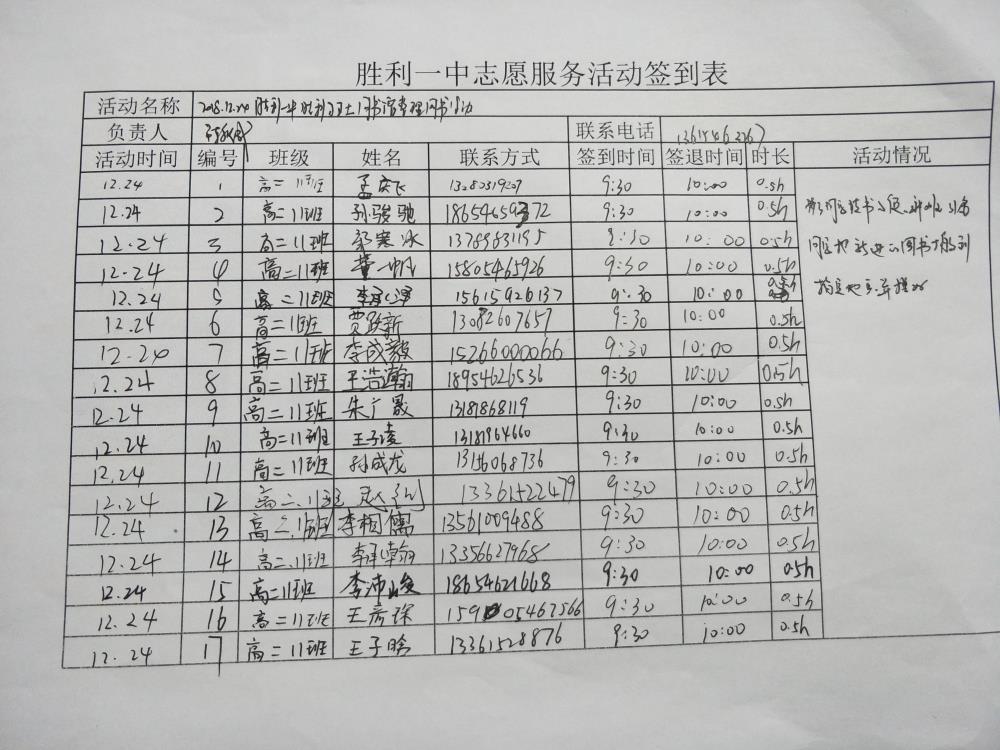 胜利一中志愿服务活动签到表
活动名称 2018.12.24 胜利一中 图书馆整理图书活动
负责人 联系电话
活动时间 编号 班级 姓名 联系方式 签到时间 签退时间 时长 活动情况
12.24 1 高二11班 孟庆飞 13080319207 9:30 10:00 0.5h
12.24 2 高二11班 孙骏驰 9:30 10:00 0.5h
12.24 3 高二11班 郭寒冰 13789831195 9:30 10:00 0.5h
12.24 4 高二11班 董一帆 15805465926 9:30 10:00 0.5h
12.24 5 高二11班 15615926137 9:30 10:00 0.5h
12.24 6 高二11班 贾跃新 13082607657 9:30 10:00 0.5h
12.24 7 高二11班 李成毅 15266000066 9:30 10:00 0.5h
12.24 8 高二11班 王浩瀚 18954626536 9:30 10:00 0.5h
12.24 9 高二11班 朱广晟 13181868119 9:30 10:00 0.5h
12.24 10 高二11班 王子凌 13181964660 9:30 10:00 0.5h
12.24 11 高二11班 孙成龙 13156068736 9:30 10:00 0.5h
12.24 12 高二.11班 13361522479 9:30 10:00 0.5h
12.24 13 高二.11班 李相儒 13561009488 9:30 10:00 0.5h
12.24 14 高二.11班 13356627968 9:30 10:00 0.5h
12.24 15 高二11班 李沛峻 18654621668 9:30 10:00 0.5h
12.24 16 高二11班 王彦琛 9:30 10:00 0.5h
12.24 17 高二11班 王子晗 13361528876 9:30 10:00 0.5h